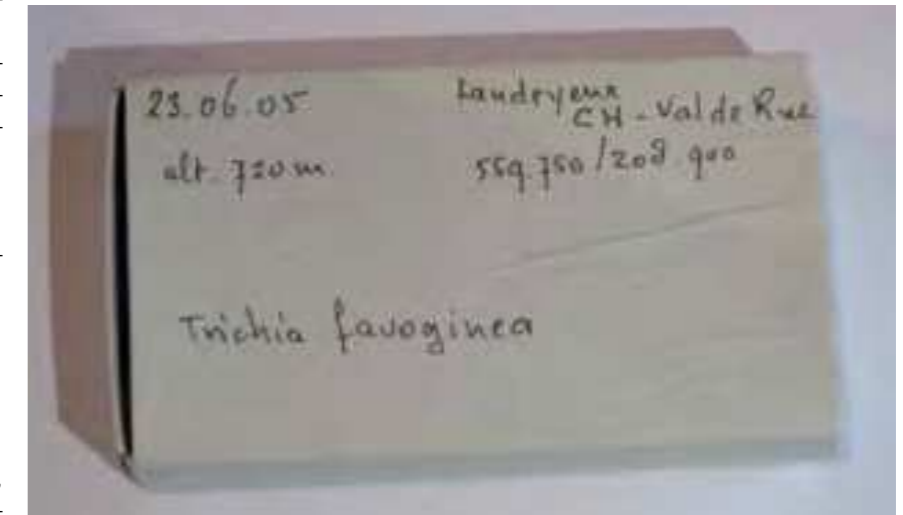 23.06.05 Landryeux
CH - Val de Ruz
alt. 720 m 559.750 / 208 900
Trichia favoginea